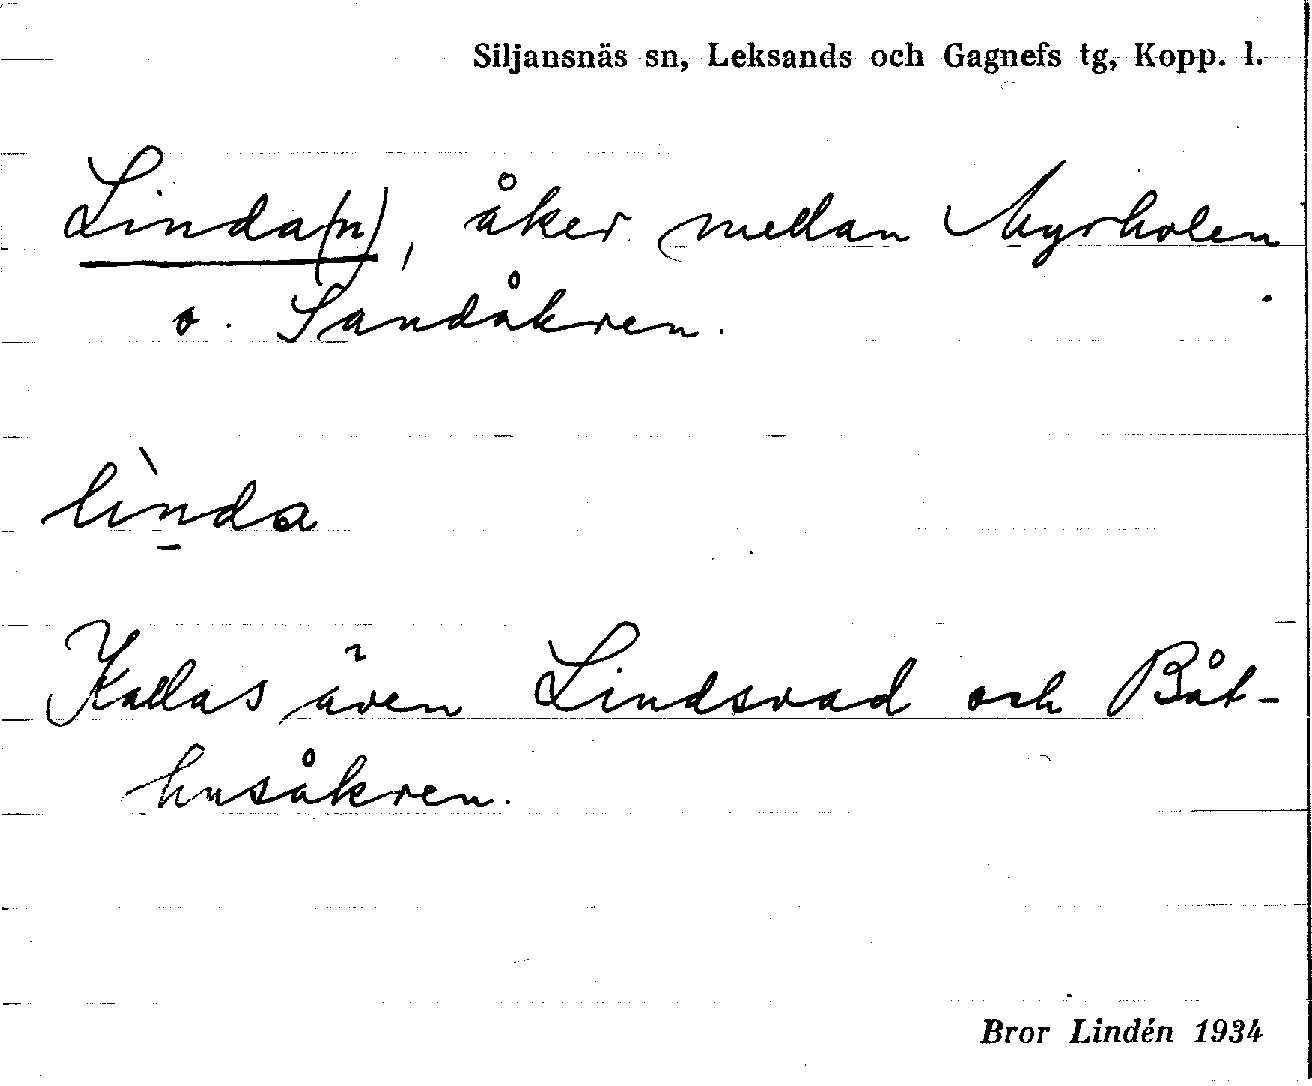 Siljansnäs sn, Leksands och Gagnefs tg, Kopp. l.
Linda(n), åker mellan Myrholen
o. Sandåkren.
lìnda
Kallas även Lindsvad och Båt-
husåkren.
Bror Lindén 1934